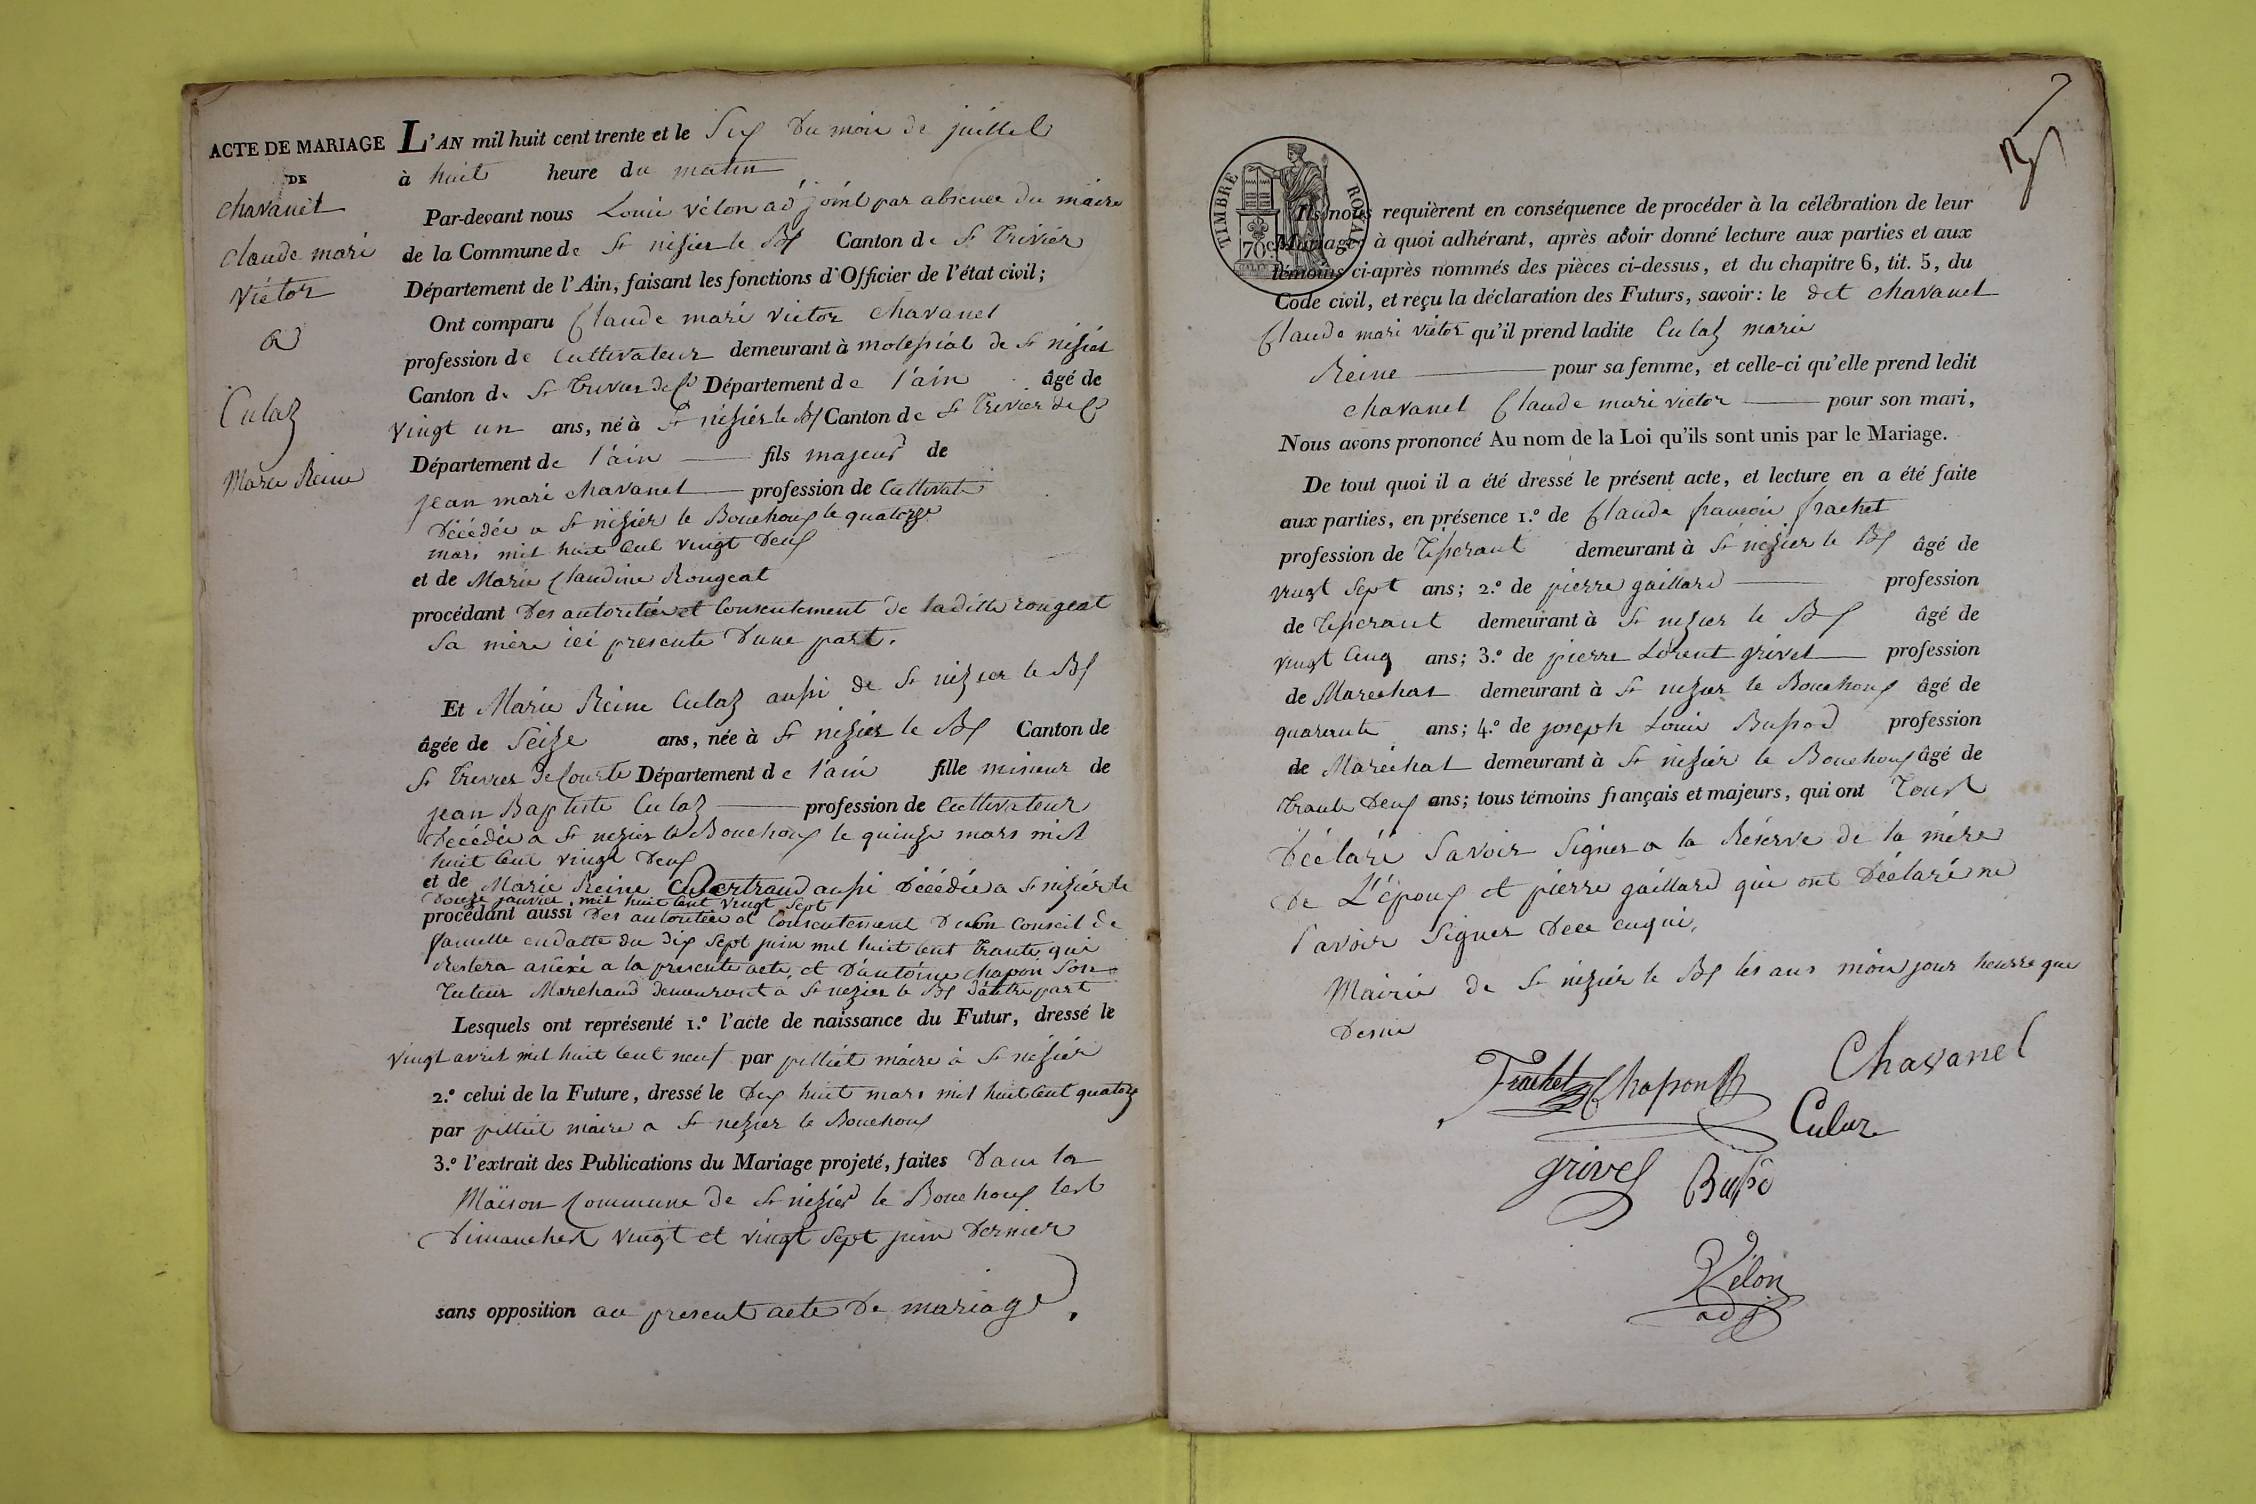 ACTE DE MARIAGE
DE
Chavanet
Claude mari
Victor
a
Culaz
Marie Reine
L'AN mil huit cent trente et le Six Du mois de juillet
à huit heure du matin
Par-devant nous Louis vélon adjoint par absence du maire
de la Commune de St nizier le Bx Canton de St Trivier
Département de l'Ain, faisant les fonctions d'Officier de l'état civil;
Ont comparu Claude mari victor chavanel
profession de Cultivateur demeurant à molissiat de St nizier
Canton de St Trivier de Cs Département de l'ain âgé de
vingt un ans, né à St nizier le Bx Canton de St Trivier de Cs
Département de l'ain fils majeur de
jean mari chavanel profession de Cultivate
Décédée a St nizier le Bouchoux le quatorze
mars mil huit Cent vingt Deux
et de Marie Claudine Rongeat
procédant Des autoritées et Consentement de laditte rongeat
Sa mère ici presente D'une part.
Et Marie Reine Culaz aussi de St nizier le Bx
âgée de Seize ans, née à St nizier le Bx Canton de
St Trivier de Courte Département de l'ain fille mineur de
jean Baptiste Culaz profession de Cultivateur
Décédée a St nizier le Bouchoux le quinze mars mil
huit Cent vingt Deux
et de Marie Reine Bertrand aussi Décédée a St nizier le
Douze janvier mil huit Cent vingt Sept
procédant aussi Des autoritées et Consentement D'un Conseil de
famille endatte du Dix Sept juin mil huit Cent Trante qui
Restera anéxé a la presente acte, et D'antoine chapon Son
Tuteur Marchand demeurant a St nizier le Bx D'autre part
Lesquels ont représenté 1.º l'acte de naissance du Futur, dressé le
vingt avril mil huit Cent neuf par pilliet maire a St nizier
2.º celui de la Future, dressé le Dix huit mars mil huit Cent quatorze
par pilliet maire a St nizier le Bouchoux
3.º l'extrait des Publications du Mariage projeté, faites Dans la
Maison Commune de St nizier le Bouchoux les
Dimanches vingt et vingt Sept juin Dernier
sans opposition au present acte De mariage.
TIMBRE ROYAL
70c
Ils nous requièrent en conséquence de procéder à la célébration de leur
Mariage; à quoi adhérant, après avoir donné lecture aux parties et aux
témoins ci-après nommés des pièces ci-dessus, et du chapitre 6, tit. 5, du
Code civil, et reçu la déclaration des Futurs, savoir: le dit chavanel
Claude mari victor qu'il prend ladite Culaz marie
Reine pour sa femme, et celle-ci qu'elle prend ledit
chavanel Claude mari victor pour son mari,
Nous avons prononcé Au nom de la Loi qu'ils sont unis par le Mariage.
De tout quoi il a été dressé le présent acte, et lecture en a été faite
aux parties, en présence 1.º de Claude francois frachet
profession de Tisserant demeurant à St nizier le Bx âgé de
vingt Sept ans; 2.º de pierre gaillard profession
de Tisserant demeurant à St nizier le Bx âgé de
vingt Cinq ans; 3.º de pierre Lorent grivel profession
de Marechal demeurant à St nizier le Bouchoux âgé de
quarante ans; 4.º de joseph Louis Bussod profession
de Maréchal demeurant à St nizier le Bouchoux âgé de
Trante Deux ans; tous témoins français et majeurs, qui ont Tous
Déclaré Savoir Signer a la Réserve de la mère
De L'époux et pierre gaillard qui ont Déclaré ne
Savoir Signer Dece enqui,
Mairie de St nizier le Bx les ans mois jour heurre que
Desus
Frachet Chapon Chavanel
Culaz
grivel Bussod
Vélon
adj